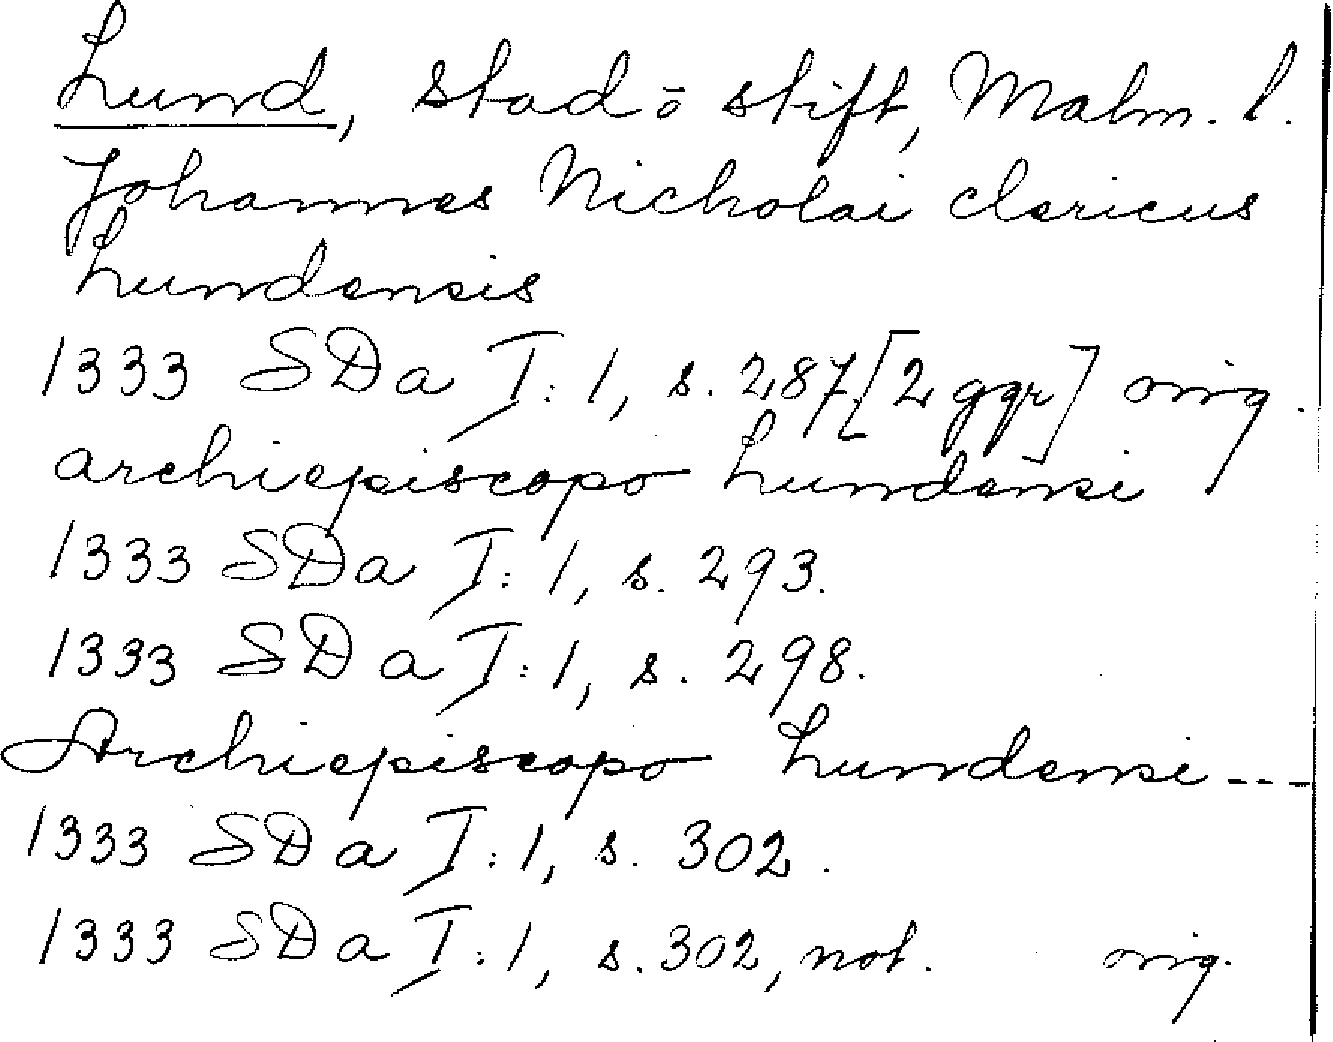 Lund, stad o stift, Malm. l.
Johannes Nicholai clericus
Lundensis
1333 SDa I:1, s. 287 [2 ggr] orig.
archiepiscopo Lundensi
1333 SDa I:1, s. 293.
1333 SDa I:1, s. 298.
Archiepiscopo Lundensi ---
1333 SDa I:1, s. 302.
1333 SDa I:1, s. 302, not. orig.